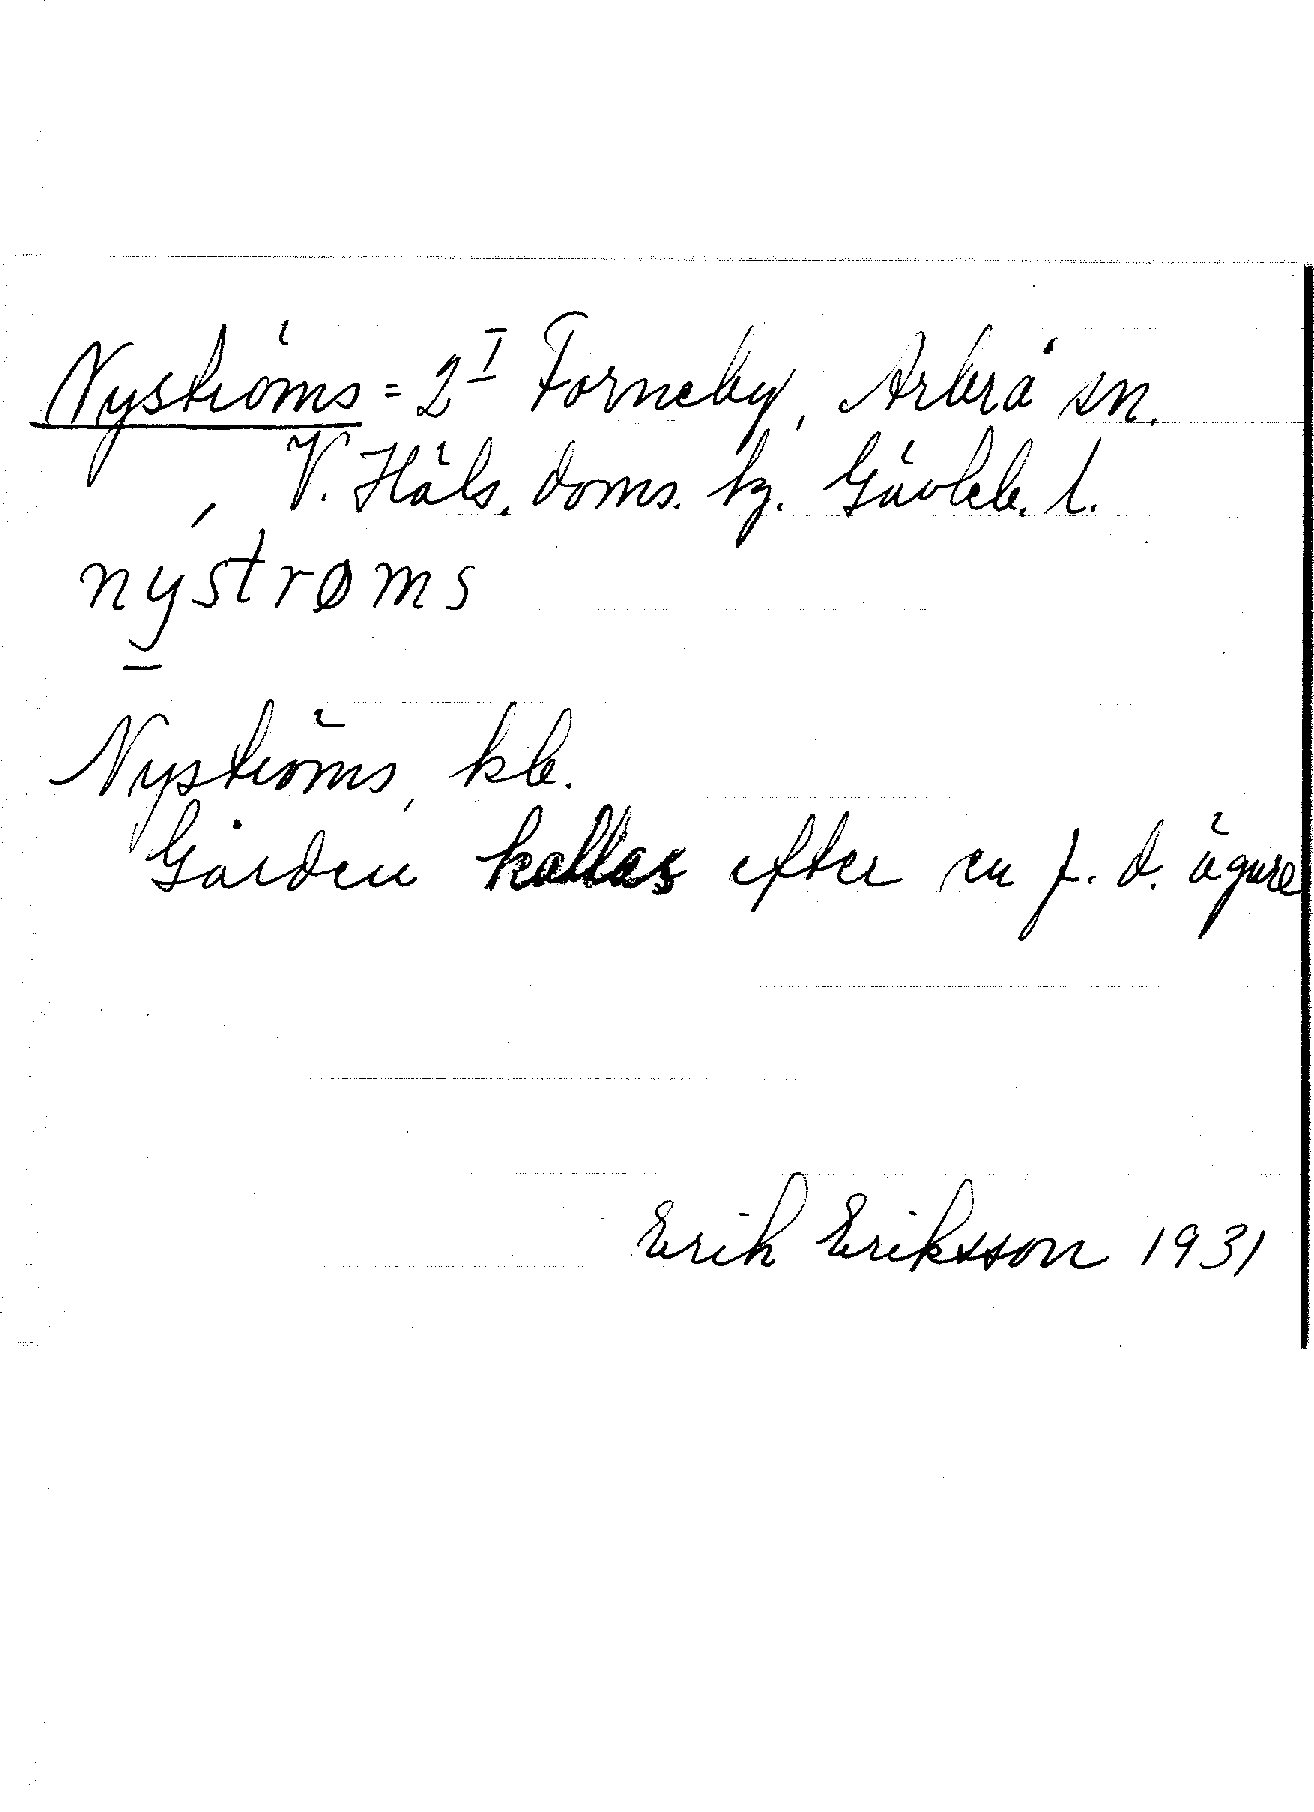 Nyströms = 2 I Forneby, Arbrå sn.
V. Häls. doms. hg. Gävleb. l.
nystrøms
Nyströms, kb.
Gården kallas efter en f. d. ägare
Erik Eriksson 1931